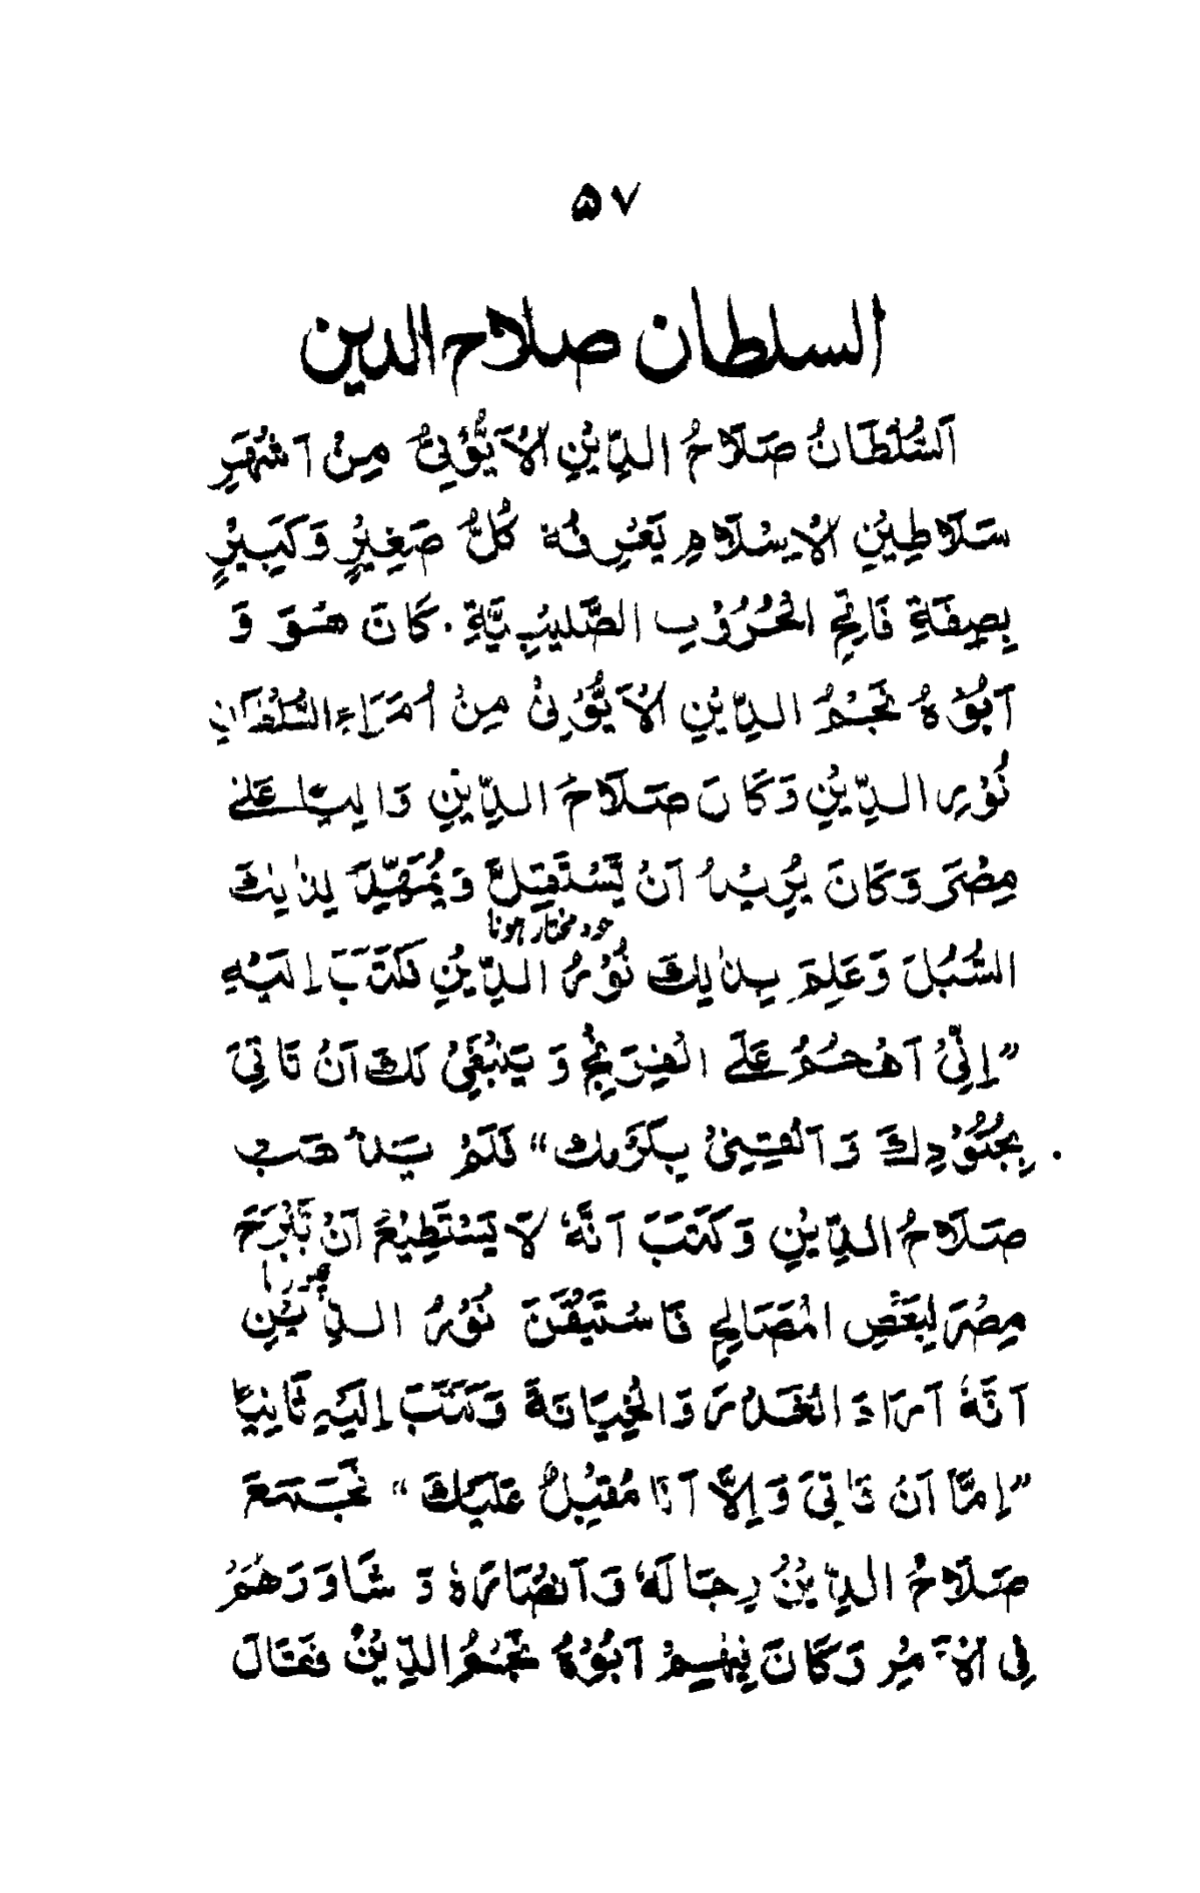 ۵۷
السلطان صلاح الدين
اَلسُّلْطَانُ صَلَاحُ الدِّيْنِ الْاَيُّوْبِيُّ مِنْ اَشْهَرِ
سَلَاطِيْنِ الْاِسْلَامِ يَعْرِفُهٗ كُلُّ صَغِيْرٍ وَكَبِيْرٍ
بِصِفَةِ فَاتِحِ الْحُرُوْبِ الصَّلِيْبِيَّةِ. كَانَ هُوَ وَ
اَبُوْهُ نَجْمُ الدِّيْنِ الْاَيُّوْبِيْ مِنْ اُمَرَاءِ السُّلْطَانِ
نُوْرِ الدِّيْنِ وَكَانَ صَلَاحُ الدِّيْنِ وَالِيًا عَلٰى
مِصْرَ وَكَانَ يُرِيْدُ اَنْ يَّسْتَقِلَّ وَيُمَهِّدَ لِذٰلِكَ
خود مختار ہونا
السُّبُلَ وَعَلِمَ بِذٰلِكَ نُوْرُ الدِّيْنِ فَكَتَبَ اِلَيْهِ
”اِنِّيْ اَهْجُمُ عَلَى الْفِرَنْجِ وَ يَنْبَغِيْ لَكَ اَنْ تَاتِيَ
بِجُنُوْدِكَ وَ اَلْتَقِيْ بِكَرَكَ“ فَلَمْ يَذْهَبْ
صَلَاحُ الدِّيْنِ وَكَتَبَ اَنَّهٗ لَا يَسْتَطِيْعُ اَنْ يَّبْرَحَ
چھوڑنا
مِصْرَ لِبَعْضِ الْمَصَالِحِ فَاسْتَيْقَنَ نُوْرُ الدِّيْنِ
اَنَّهٗ اَرَادَ الْغَدْرَ وَالْخِيَانَةَ وَكَتَبَ اِلَيْهِ ثَانِيًا
”اِمَّا اَنْ تَاْتِيَ وَاِلَّا اَنَا مُقْبِلٌ عَلَيْكَ“ فَجَمَعَ
صَلَاحُ الدِّيْنُ رِجَالَهٗ وَاَنْصَارَهٗ وَ شَاوَرَهُمْ
فِي الْاَمْرِ وَكَانَ فِيْهِمْ اَبُوْهُ نَجْمُ الدِّيْنُ فَقَالَ